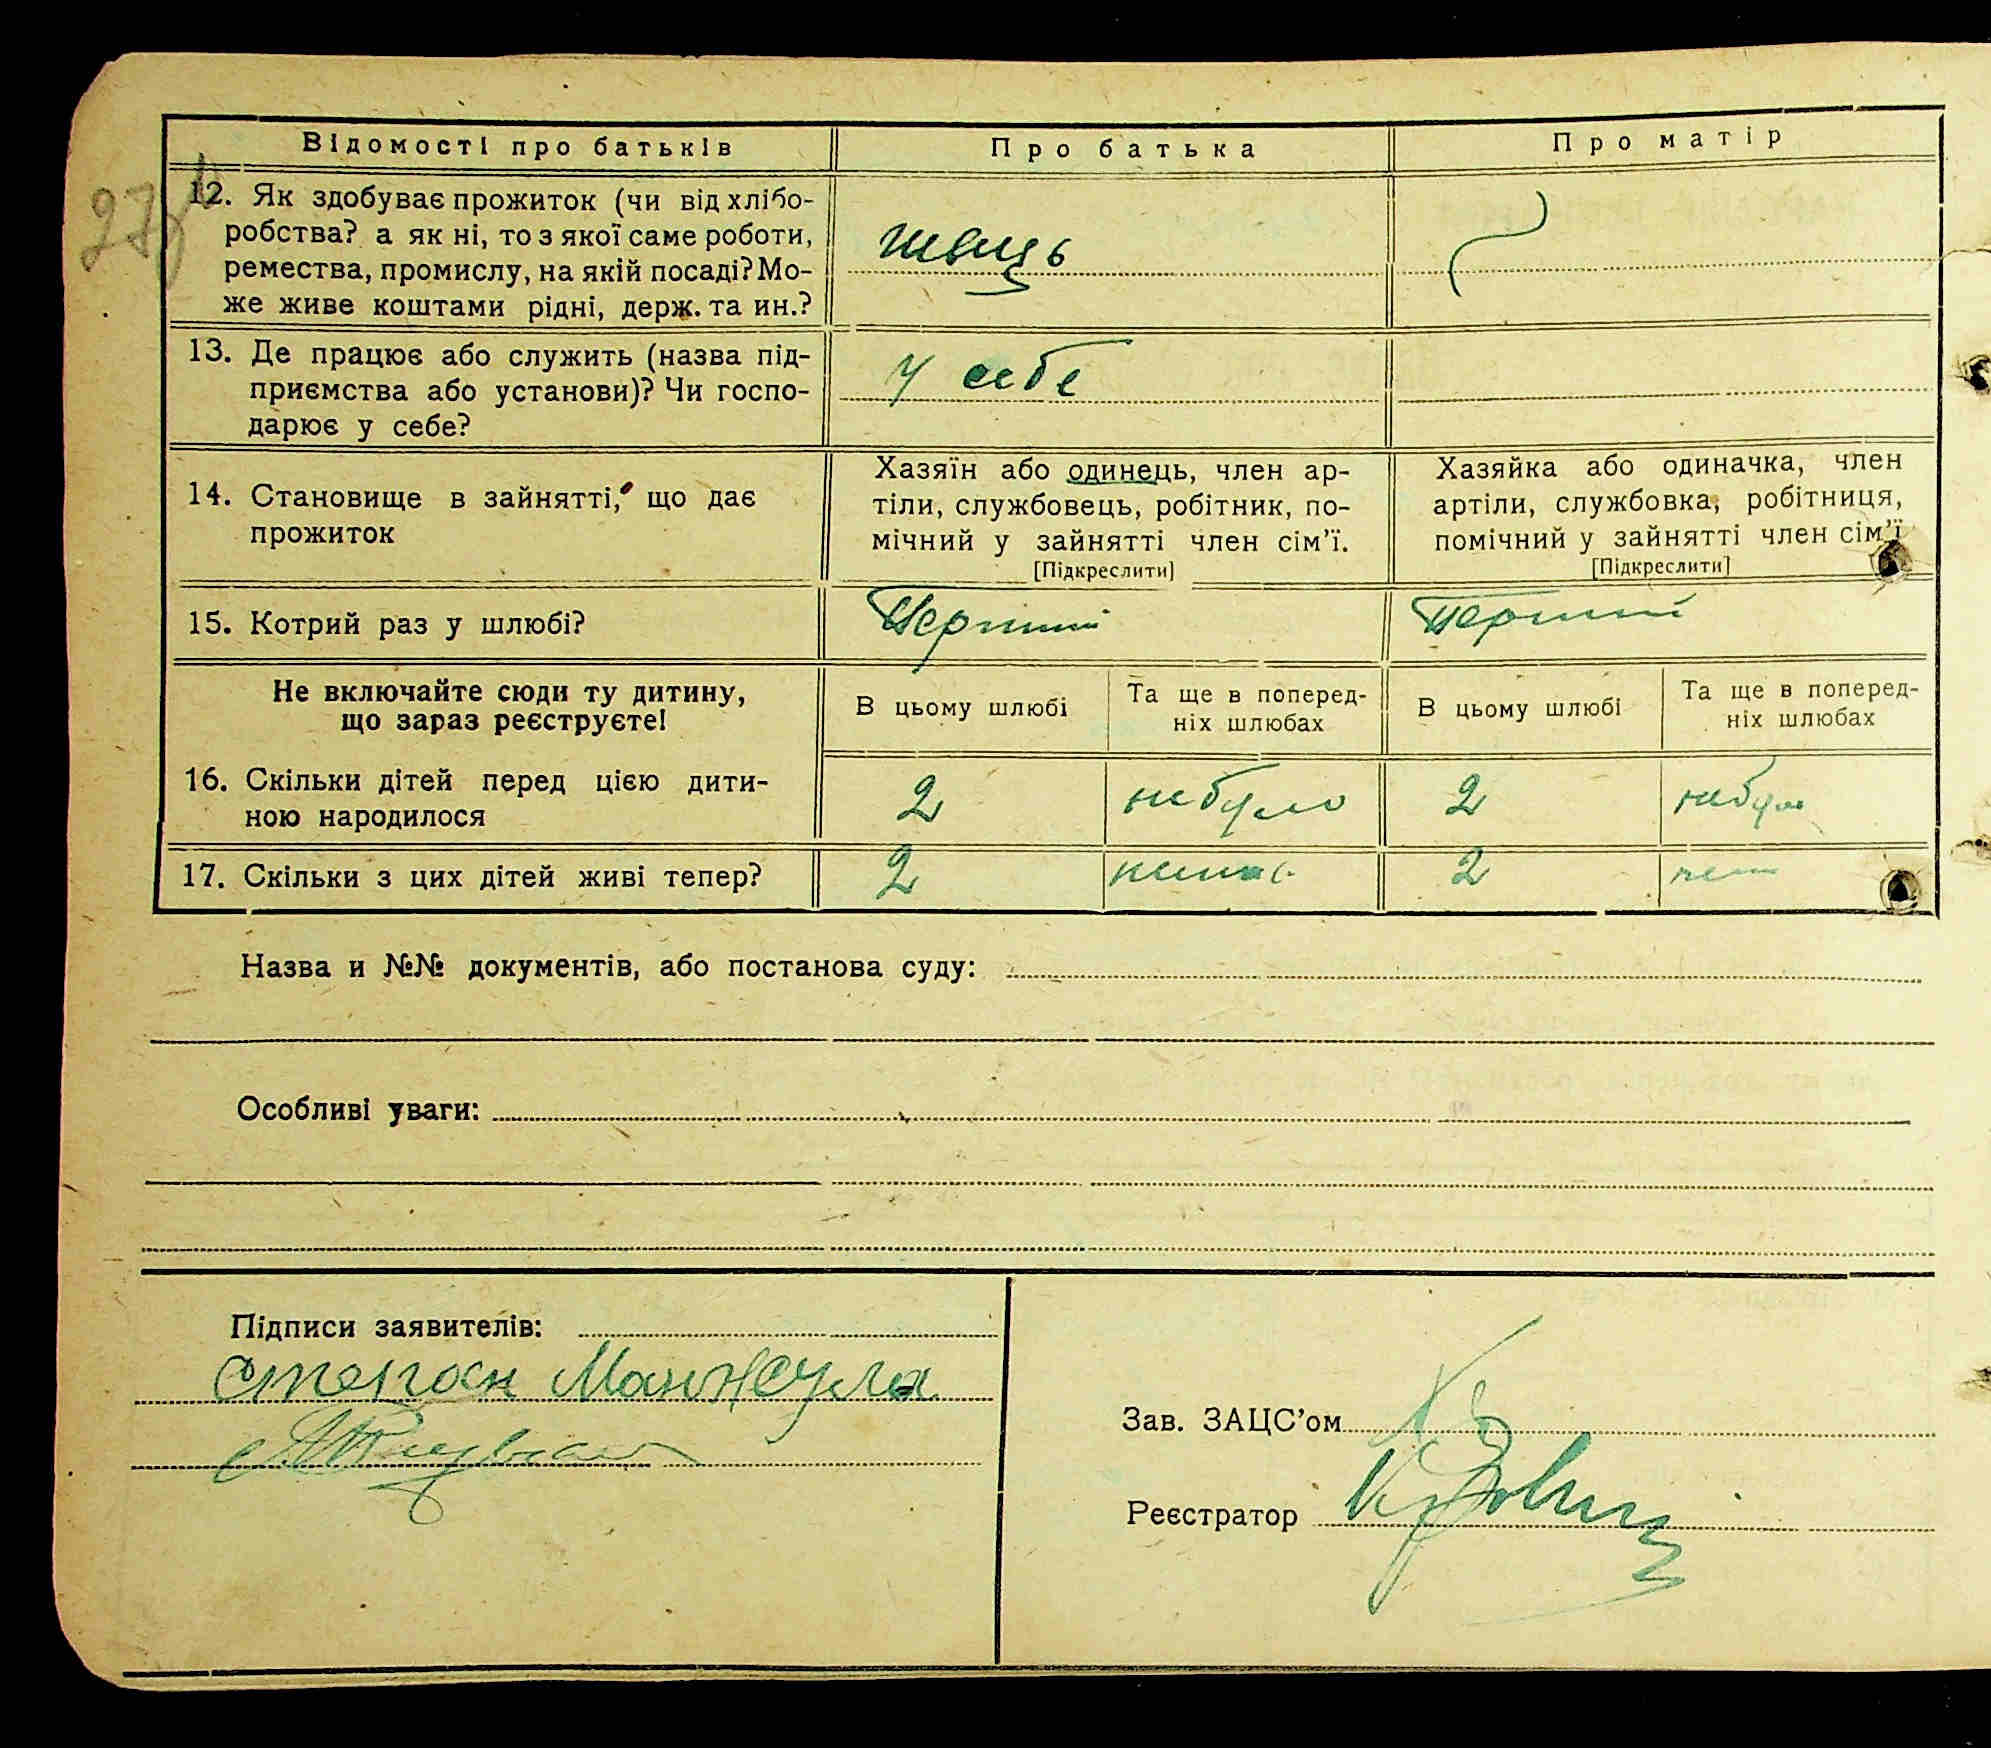 Відомості про батьків Про батька Про матір
12. Як здобуває прожиток (чи від хлібо-
робства? а як ні, то з якої саме роботи,
ремества, промислу, на якій посаді? Мо-
же живе коштами рідні, держ. та ин.?
швець
13. Де працює або служить (назва під-
приємства або установи)? Чи госпо-
дарює у себе?
у себе
14. Становище в зайнятті, що дає
прожиток
Хазяїн або одинець, член ар-
тіли, службовець, робітник, по-
мічний у зайнятті член сім'ї.
[Підкреслити]
Хазяйка або одиначка, член
артіли, службовка, робітниця,
помічний у зайнятті член сім'ї
[Підкреслити]
15. Котрий раз у шлюбі? Перший Перший
Не включайте сюди ту дитину,
що зараз реєструєте!
В цьому шлюбі
Та ще в поперед-
ніх шлюбах
В цьому шлюбі
Та ще в поперед-
ніх шлюбах
16. Скільки дітей перед цією дити-
ною народилося
2 небуло 2 небуло
17. Скільки з цих дітей живі тепер? 2 2
Назва и №№ документів, або постанова суду:
Особливі уваги:
Підписи заявителів:
Степан Манжула
Зав. ЗАЦС'ом
Реєстратор